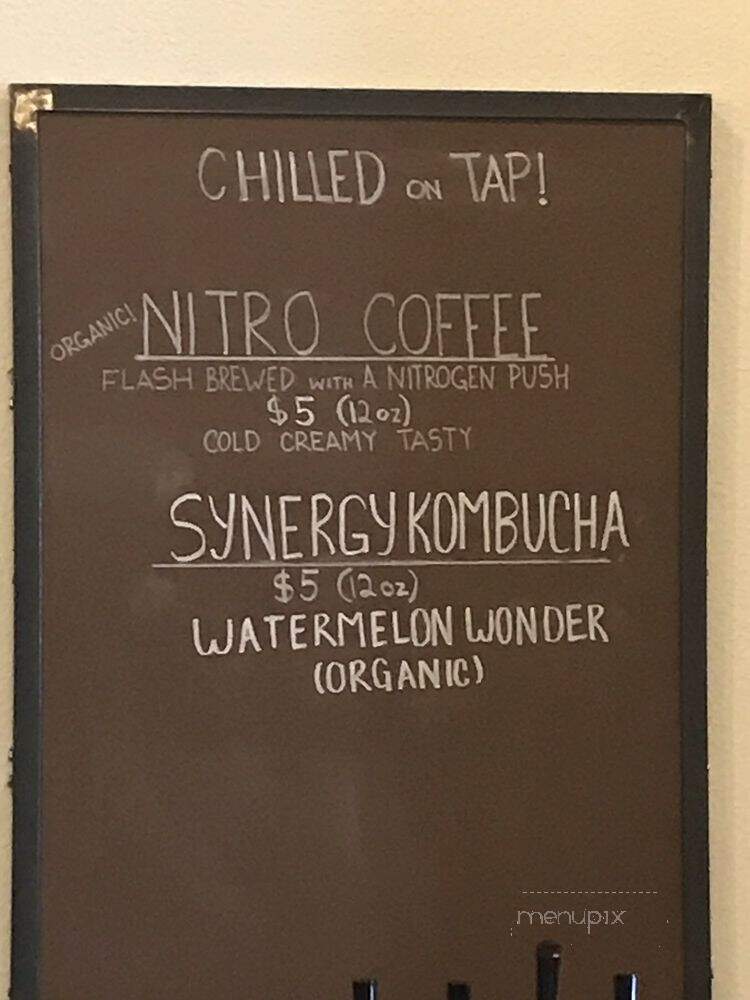 CHILLED ON TAP!
ORGANIC! NITRO COFFEE
FLASH BREWED WITH A NITROGEN PUSH
$5 (12oz)
COLD CREAMY TASTY
SYNERGY KOMBUCHA
$5 (12oz)
WATERMELON WONDER
(ORGANIC)
menupix